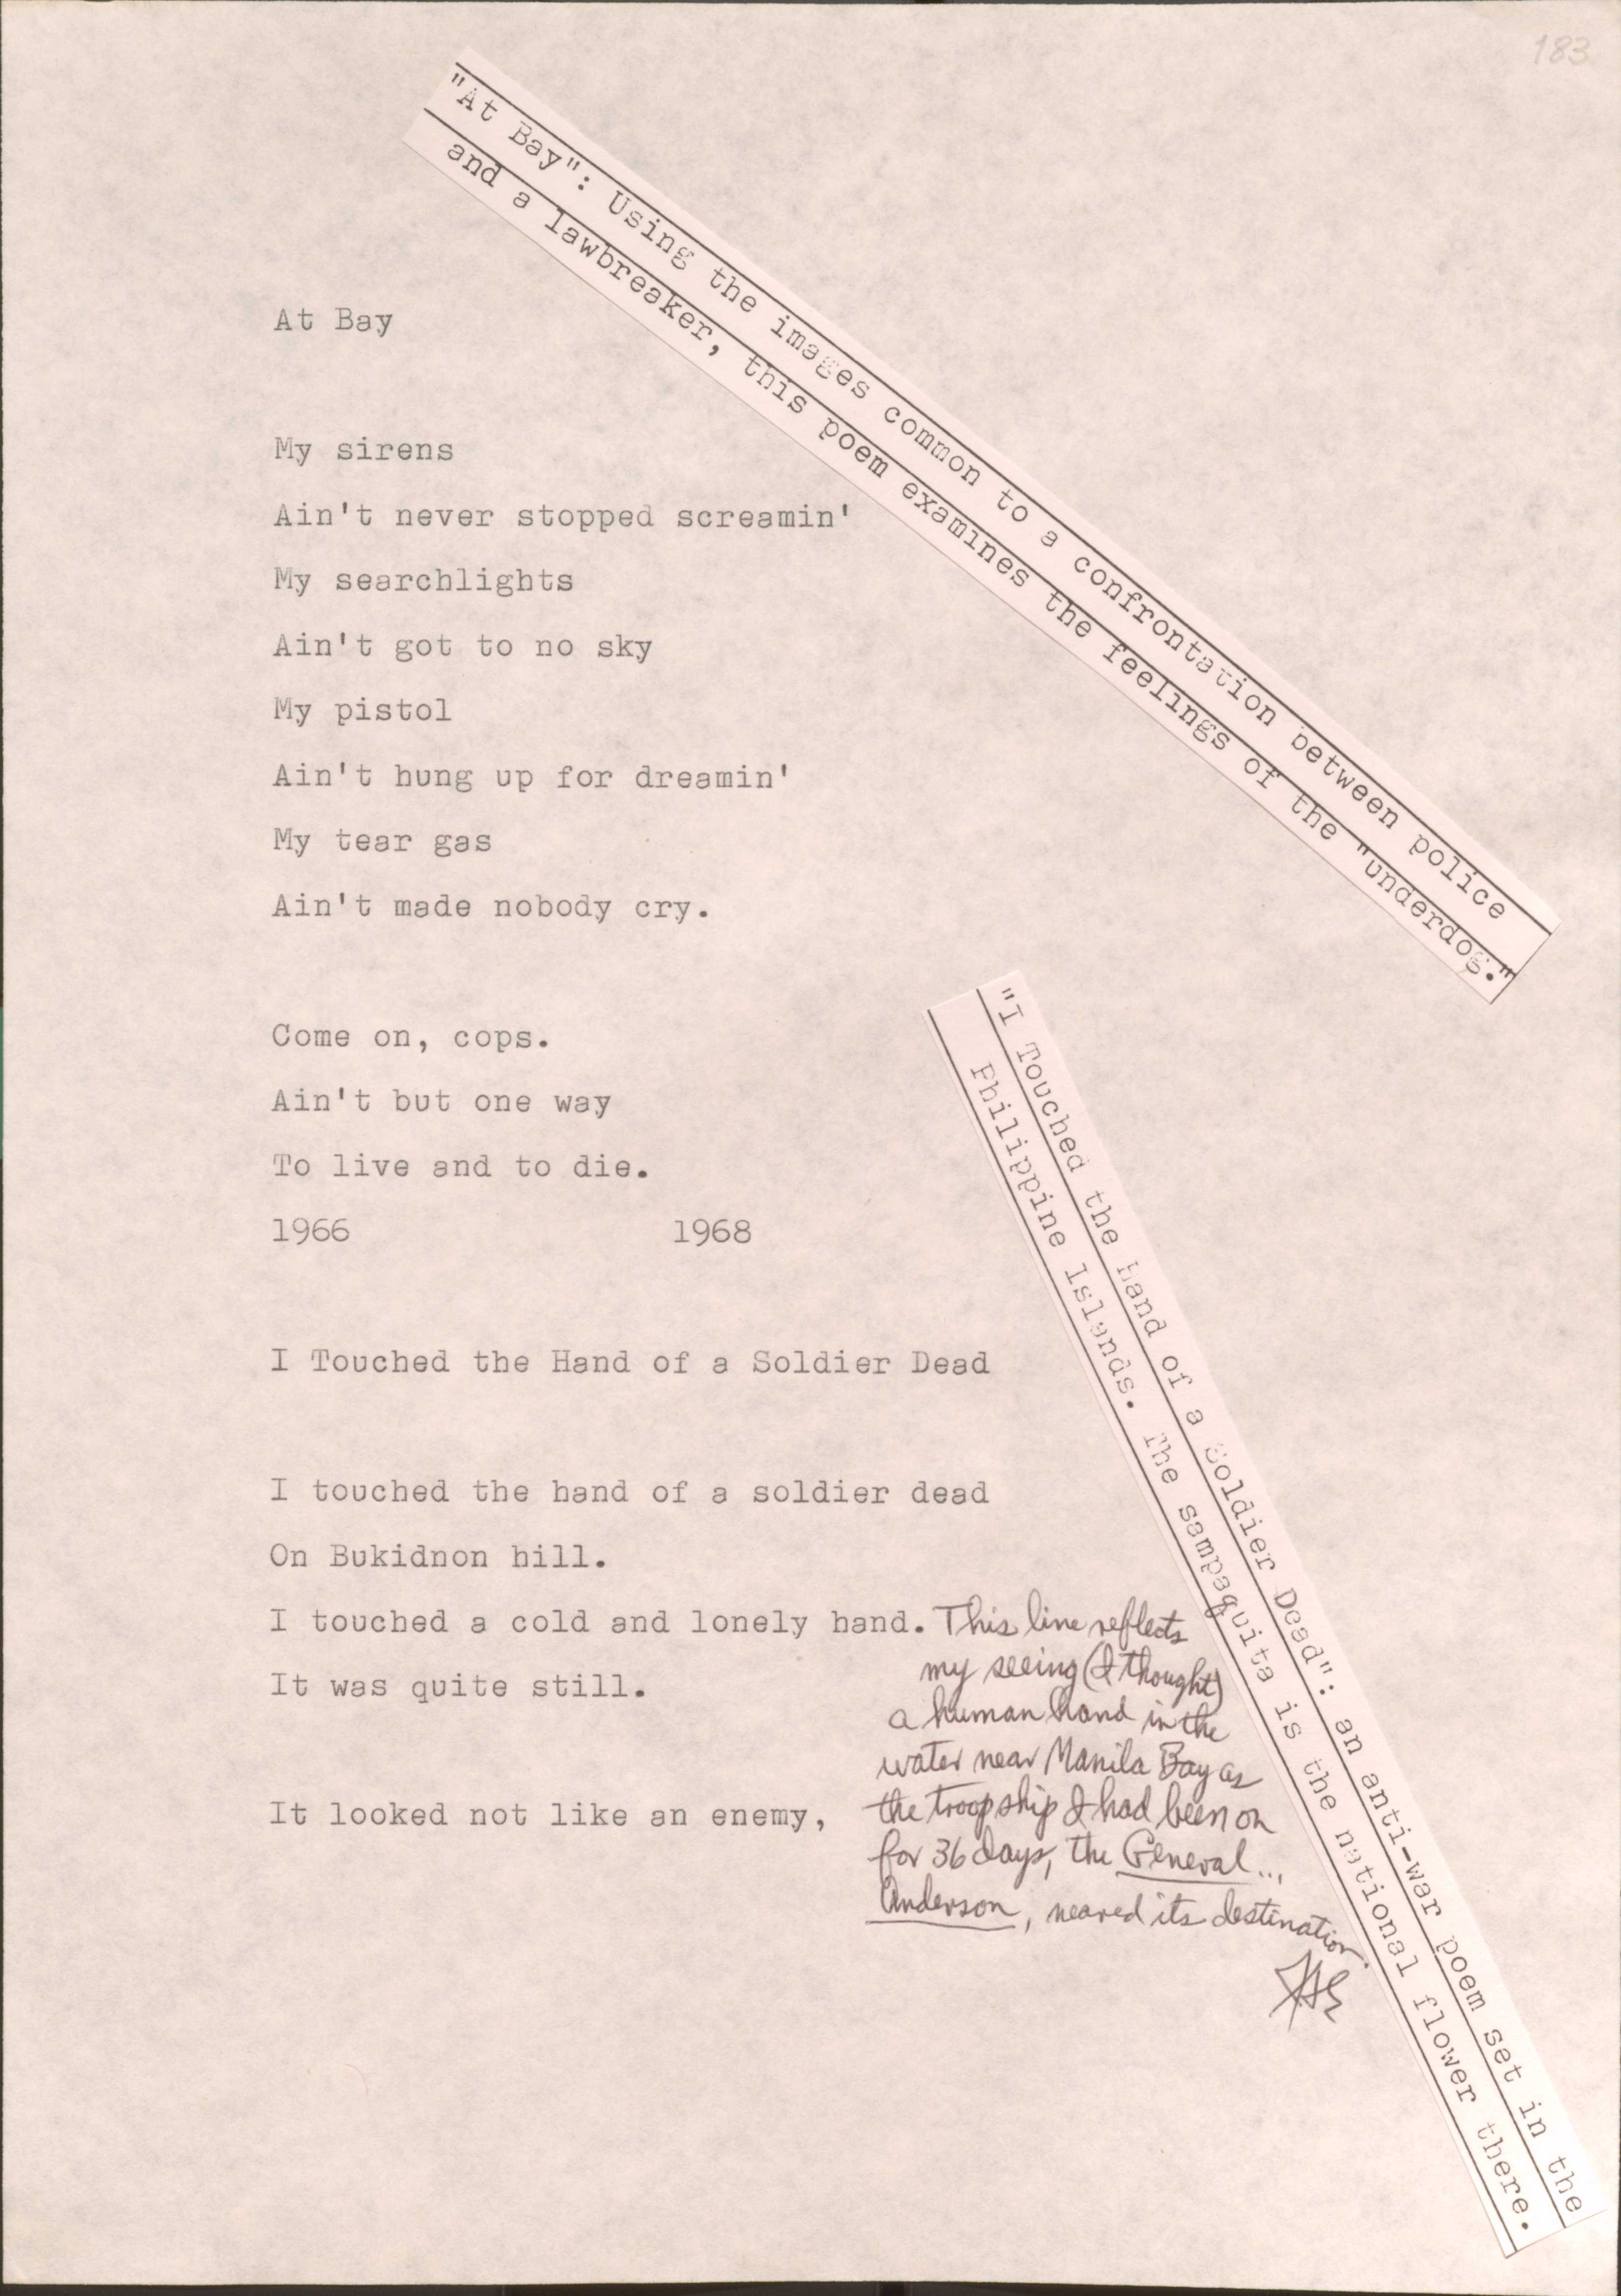 183
"At Bay": Using the images common to a confrontation between police
and a lawbreaker, this poem examines the feelings of the "underdog."
At Bay
My sirens
Ain't never stopped screamin'
My searchlights
Ain't got to no sky
My pistol
Ain't hung up for dreamin'
My tear gas
Ain't made nobody cry.
Come on, cops.
Ain't but one way
To live and to die.
1966 1968
"I Touched the Hand of a Soldier Dead": an anti-war poem set in the
Philippine Islands. The sampaguita is the national flower there.
I Touched the Hand of a Soldier Dead
I touched the hand of a soldier dead
On Bukidnon hill.
I touched a cold and lonely hand.
It was quite still.
It looked not like an enemy,
This line reflects
my seeing (I thought)
a human hand in the
water near Manila Bay as
the troopship I had been on
for 36 days, the General...
Anderson, neared its destination.